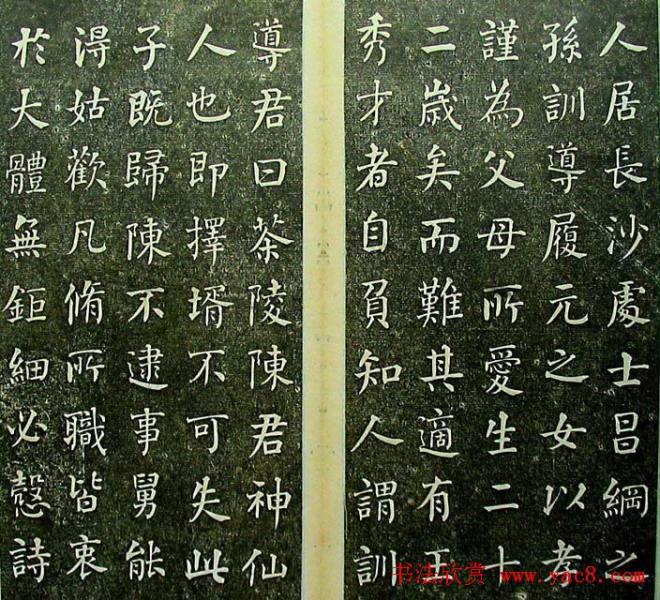 人居長沙處士呂綱之
孫訓導履元之女以孝
謹為父母所愛生二十
二歲矣而難其適有王
秀才者自負知人謂訓
導君曰茶陵陳君神仙
人也即擇壻不可失此
子既歸陳不逮事舅能
得姑歡凡脩所職皆衷
於大體無鉅細必愨詩
书法欣赏 www.yac8.com